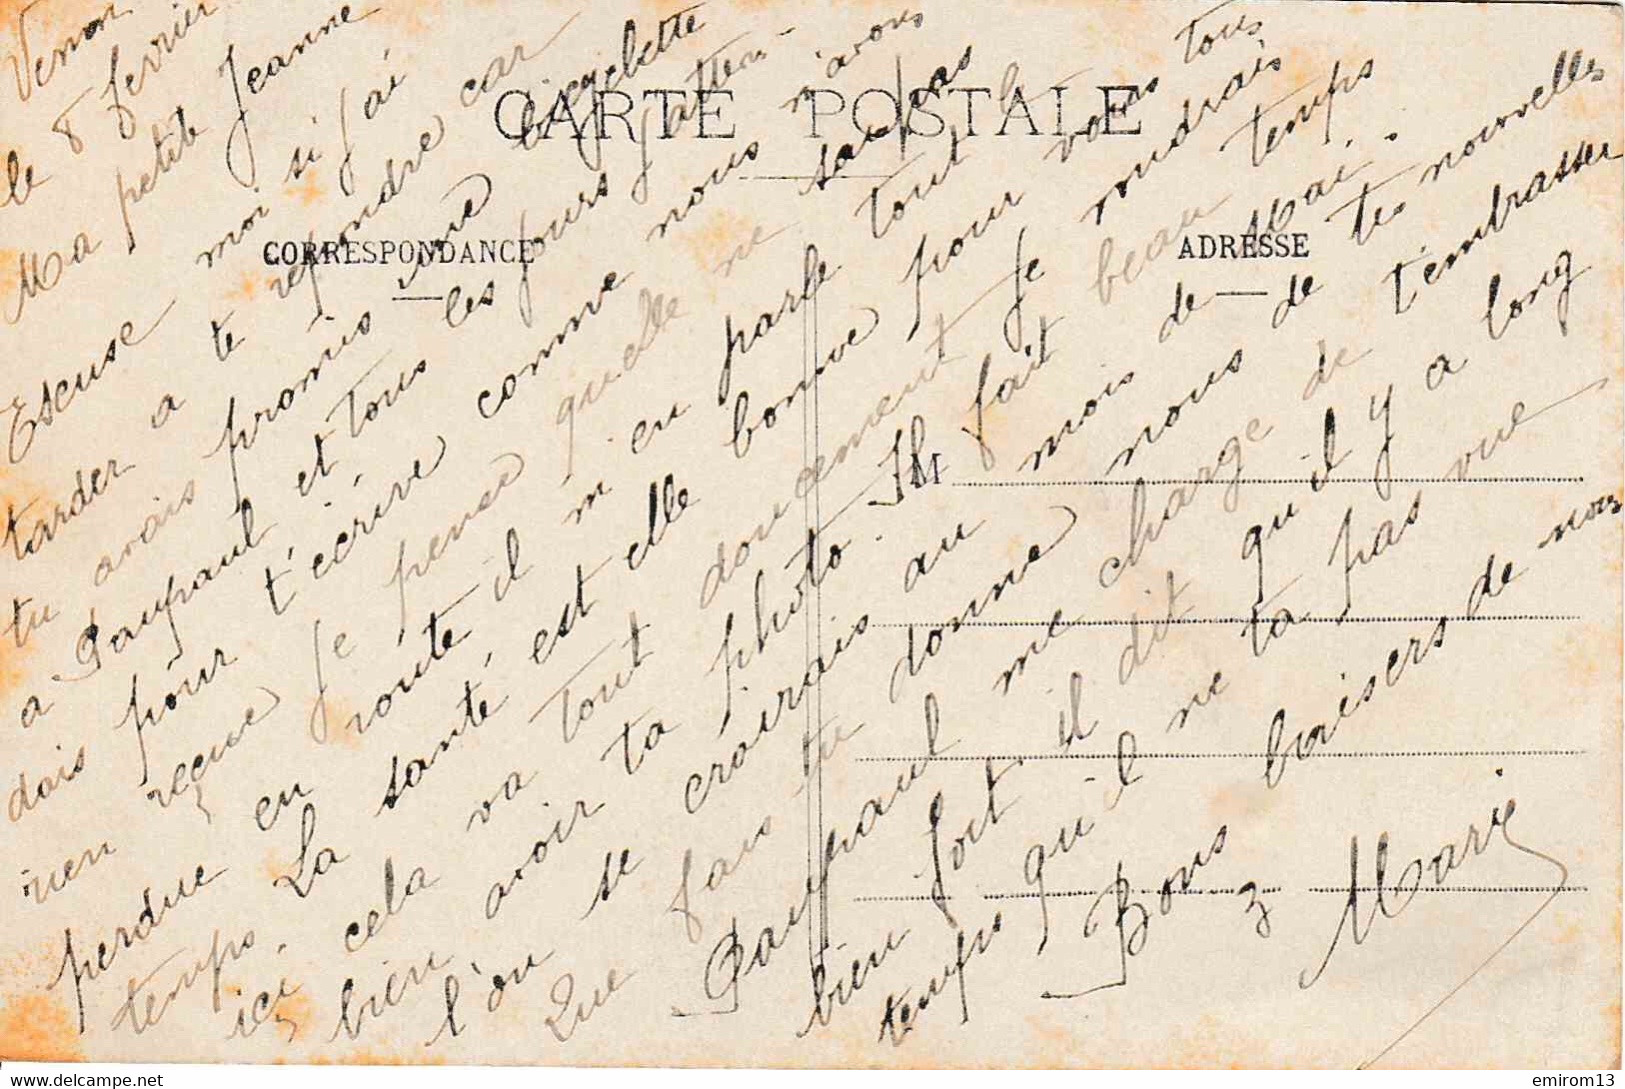 CARTE POSTALE
CORRESPONDANCE
ADRESSE
Venon
le 8 fevrier
Ma petite Jeanne
Escuse moi si j'ai
tarder a te repondre car
tu avais promis une bicyclette
a Paupaul et tous les jours j'atten-
dais pour t'écrire comme nous n'avons
rien reçue je pense quelle ne soit pas
perdue en route il m'en parle tout le
temps. La santé est elle bonne pour vous tous
ici cela va tout doucement je voudrais
bien avoir ta photo. Il fait beau temps
l'on se croirais au mois de Mai.
Que fais tu donne nous de tes nouvelles
Paupaul me charge de t'embrasser
bien fort, il dit qu'il y a long
temps qu'il ne ta pas vue
Bons baisers de nous
3
Marie
emirom13
www.delcampe.net